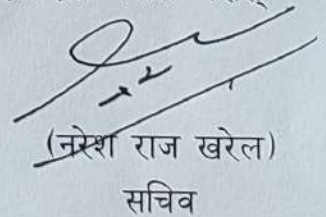 (नरेश राज खरेल)
सचिव